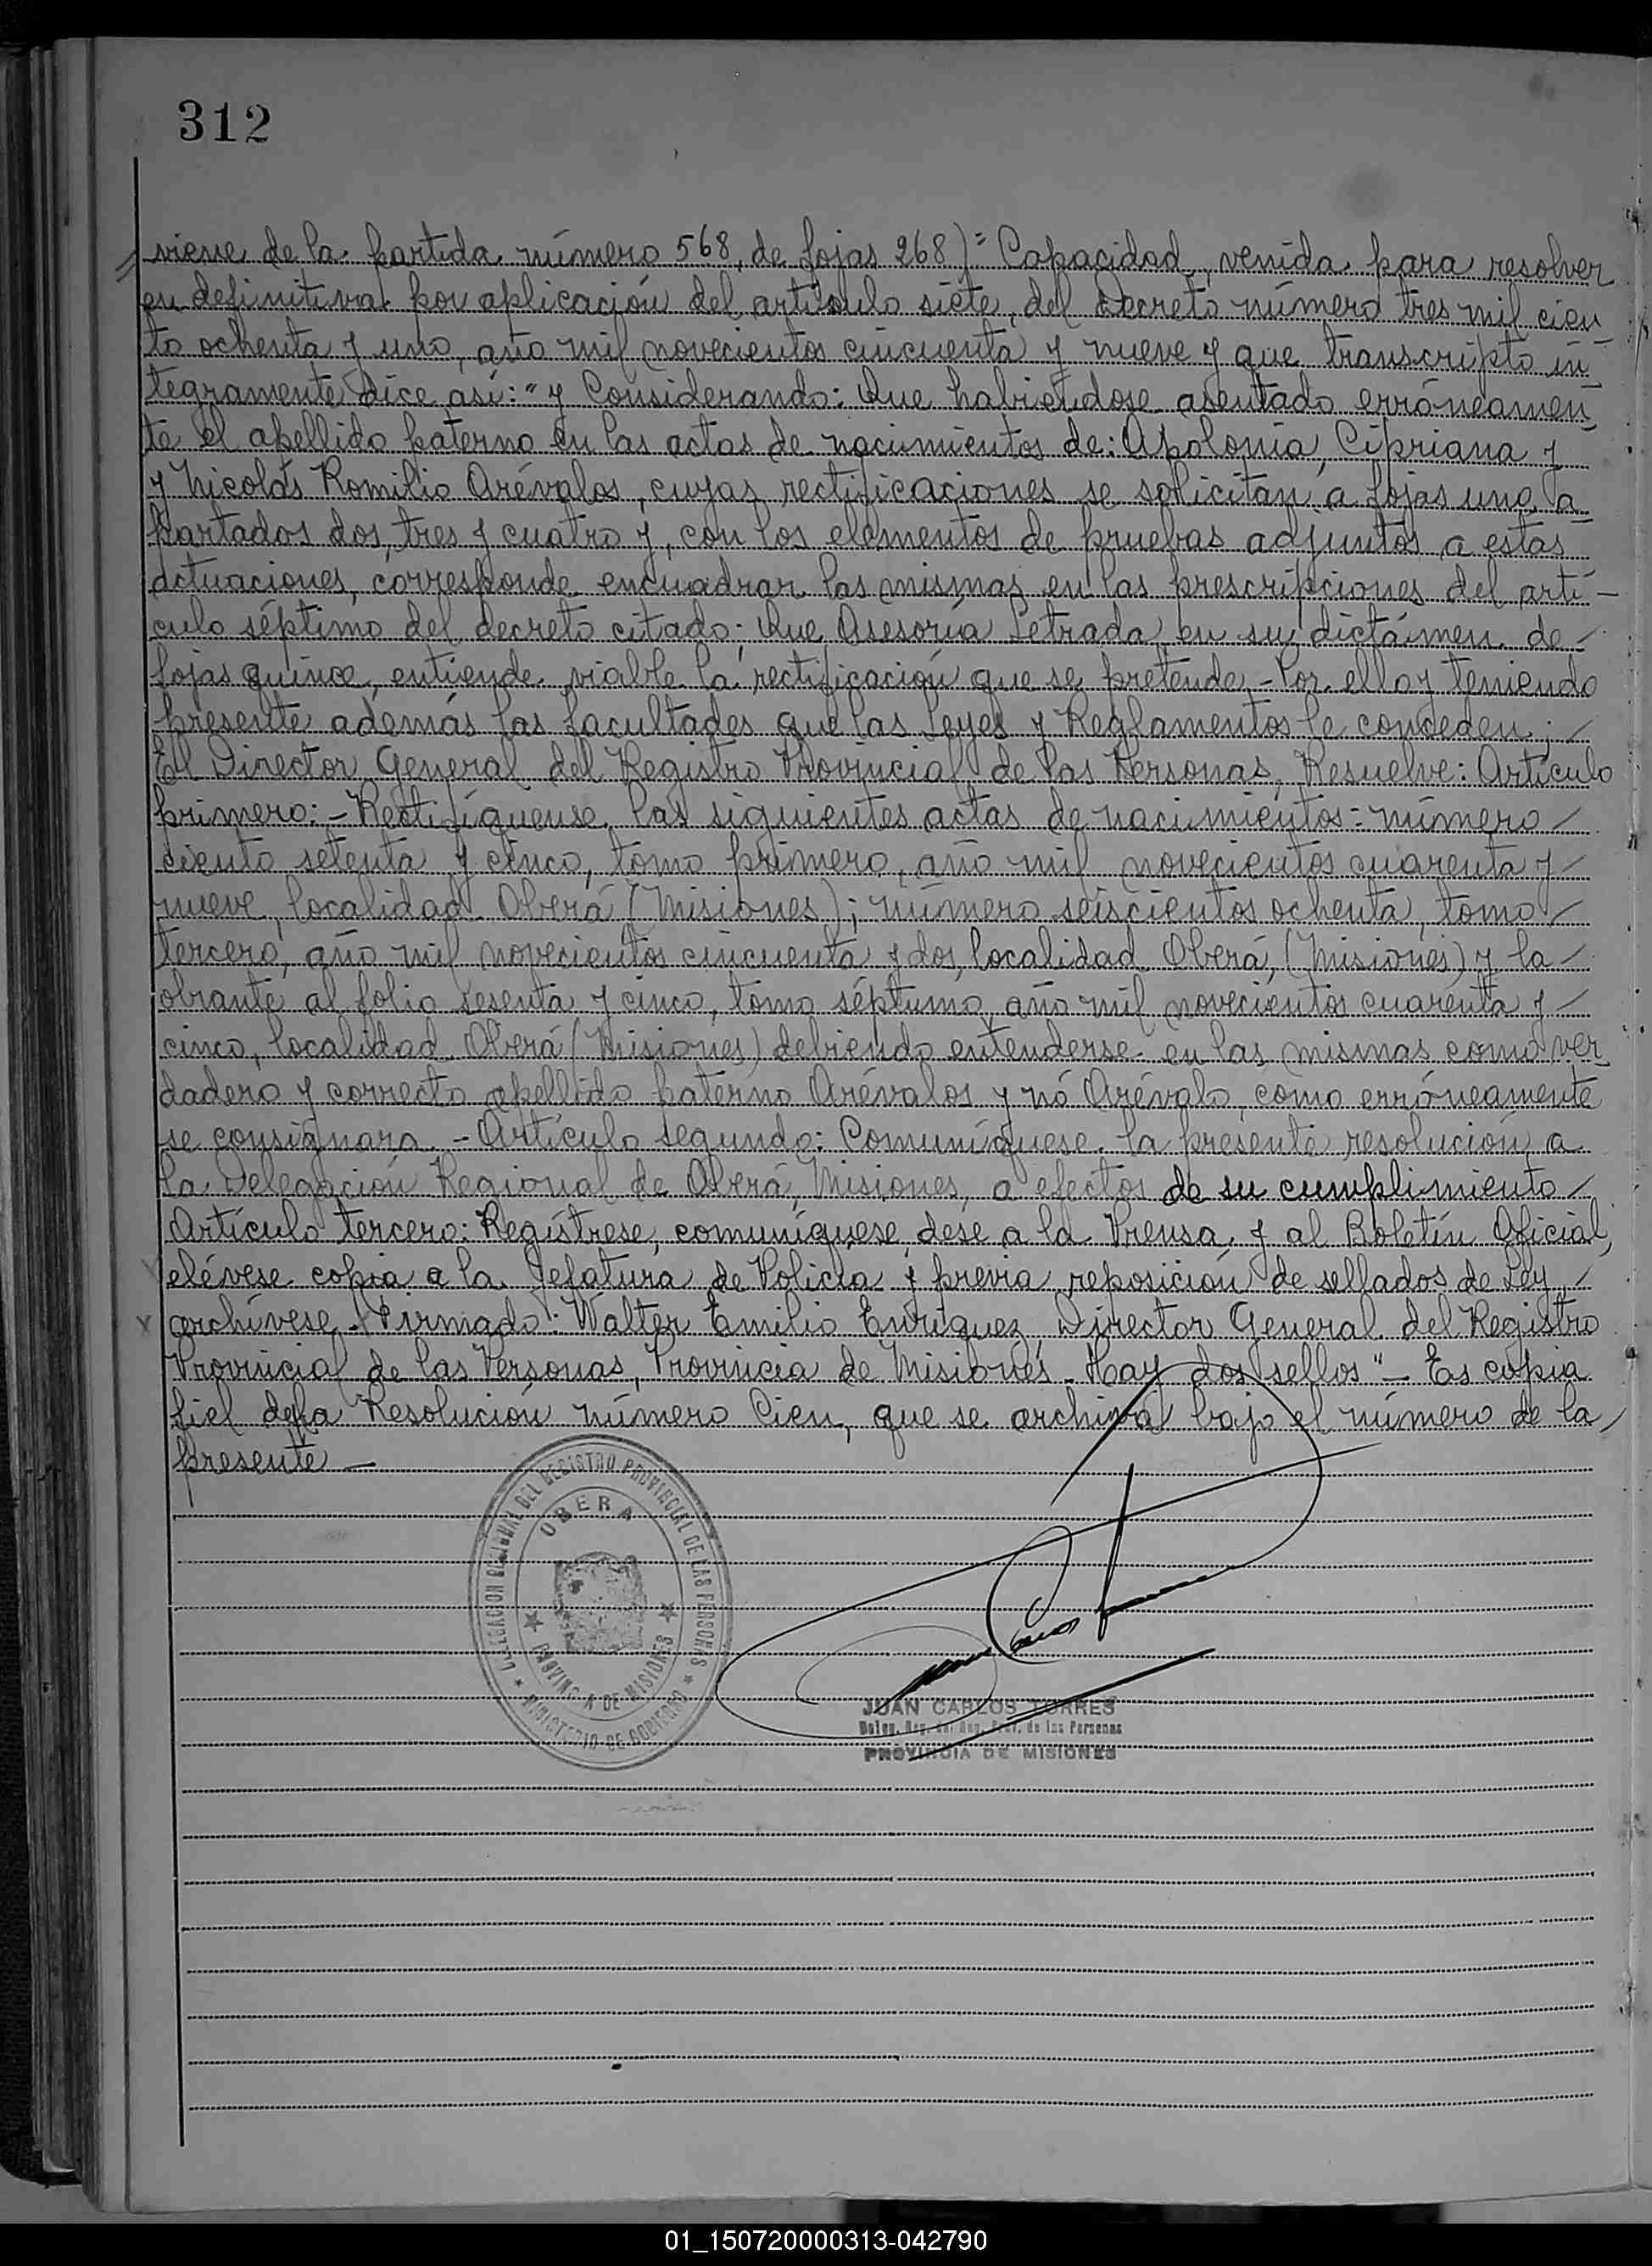 312
viene de la partida número 568, de fojas 268)= Capacidad, venida para resolver
en definitiva por aplicación del artículo siete, del Decreto número tres mil cien
to ochenta y uno, año mil novecientos cincuenta y nueve y que transcripto ín
tegramente dice así: "y Considerando: Que habiéndose asentado erróneamen
te el apellido paterno en las actas de nacimientos de: Apolonia, Cipriana y
y Nicolás Romilio Arévalos, cuyas rectificaciones se solicitan a fojas uno a
partados dos, tres y cuatro y, con los elementos de pruebas adjuntos a estas
actuaciones, corresponde encuadrar las mismas en las prescripciones del artí-
culo séptimo del decreto citado; Que Asesoría Letrada en su dictámen de
fojas quince, entiende viable la rectificación que se pretende,- Por ello y teniendo
presente además las facultades que las Leyes y Reglamentos le conceden;
El Director General del Registro Provincial de las Personas, Resuelve: Artículo
primero:- Rectifíquense las siguientes actas de nacimientos: número
ciento setenta y cinco, tomo primero, año mil novecientos cuarenta y
nueve, localidad Oberá (Misiones); número seiscientos ochenta, tomo
tercero, año mil novecientos cincuenta y dos, localidad Oberá, (Misiones) y la
obrante al folio sesenta y cinco, tomo séptimo, año mil novecientos cuarenta y
cinco, localidad Oberá (Misiones) debiendo entenderse en las mismas como ver
dadero y correcto apellido paterno Arévalos y nó Arévalo, como erróneamente
se consignara.- Artículo segundo: Comuníquese la presente resolución a
la Delegación Regional de Oberá, Misiones, a efectos de su cumplimiento
Artículo tercero: Regístrese, comuníquese, dese a la Prensa y al Boletín Oficial,
elévese copia a la Jefatura de Policía y previa reposición de sellados de Ley
archívese.- Firmado: Walter Emilio Enríquez, Director General del Registro
Provincial de las Personas, Provincia de Misiones. Hay dos sellos"- Es copia
fiel de la Resolución número Cien, que se archiva bajo el número de la
presente-
DELEGACION REGIONAL DEL REGISTRO PROVINCIAL DE LAS PERSONAS
OBERA
PROVINCIA DE MISIONES
MINISTERIO DE GOBIERNO
JUAN CARLOS TORRES
Deleg. Reg. del Reg. Prov. de las Personas
PROVINCIA DE MISIONES
01_150720000313-042790